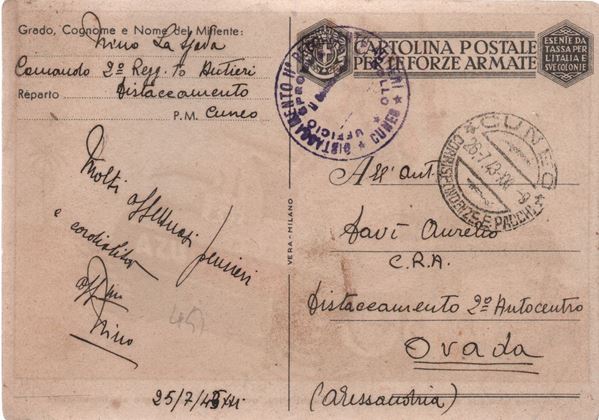 Grado, Cognome e Nome del Mittente:
Nino La
Comando 2º Regg.to Autieri
Reparto Distaccamento
P.M. Cuneo
CARTOLINA POSTALE
PER LE FORZE ARMATE
ESENTE DA
TASSA PER
L'ITALIA E
SUE COLONIE
DISTACCAMENTO IIº REGG AUTIERI
UFFICIO
CUNEO
CUNEO
26-7-43-XXI
CORRISPONDENZE E PACCHI
Molti affettuosi pensieri
e cordialità
aff.mo
Nino
25/7/43 XXI
VERA - MILANO
All'aut.
Favi Aurelio
C.R.A.
Distaccamento 2º Autocentro
Ovada
(Alessandria)